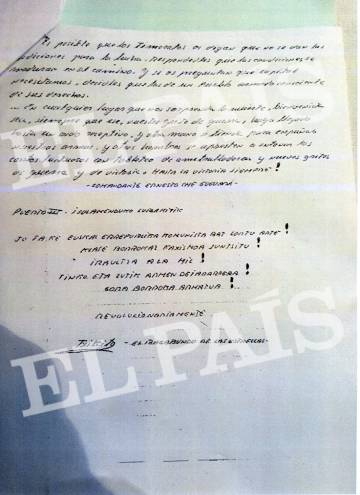 Es posible que los Timoratos os digan que no se dan las
condiciones para la lucha. Respondedles que las condiciones se
en el camino. Y si os preguntan que
necesitamos, decidles que las de un Pueblo
de sus derechos.
... En cualquier lugar que nos sorprenda la muerte, bienvenida
sea, siempre que ese, nuestro grito de guerra, haya llegado
hasta un oido receptivo, y otra mano se tienda para empuñar
nuestras armas, y otros hombres se apresten a entonar los
cantos luctuosos con tableteo de ametralladoras y nuevos gritos
de guerra y de victoria. HASTA LA VICTORIA SIEMPRE!
-COMANDANTE ERNESTO CHE GUEVARA-
PUERTO III -
JO TA KE EUSKAL ERREPUBLIKA KOMUNISTA BAT LORTU ARTE!
FAXISMOA SUNTSITU!
IRAULTZA ALA HIL!
TINKO ETA ZUTIK ARMEN DEIADARRERA!
GORA BORROKA ARMATUA!
REVOLUCIONARIAMENTE
- EL VAGABUNDO DE LAS
EL PAÍS
EL PAÍS